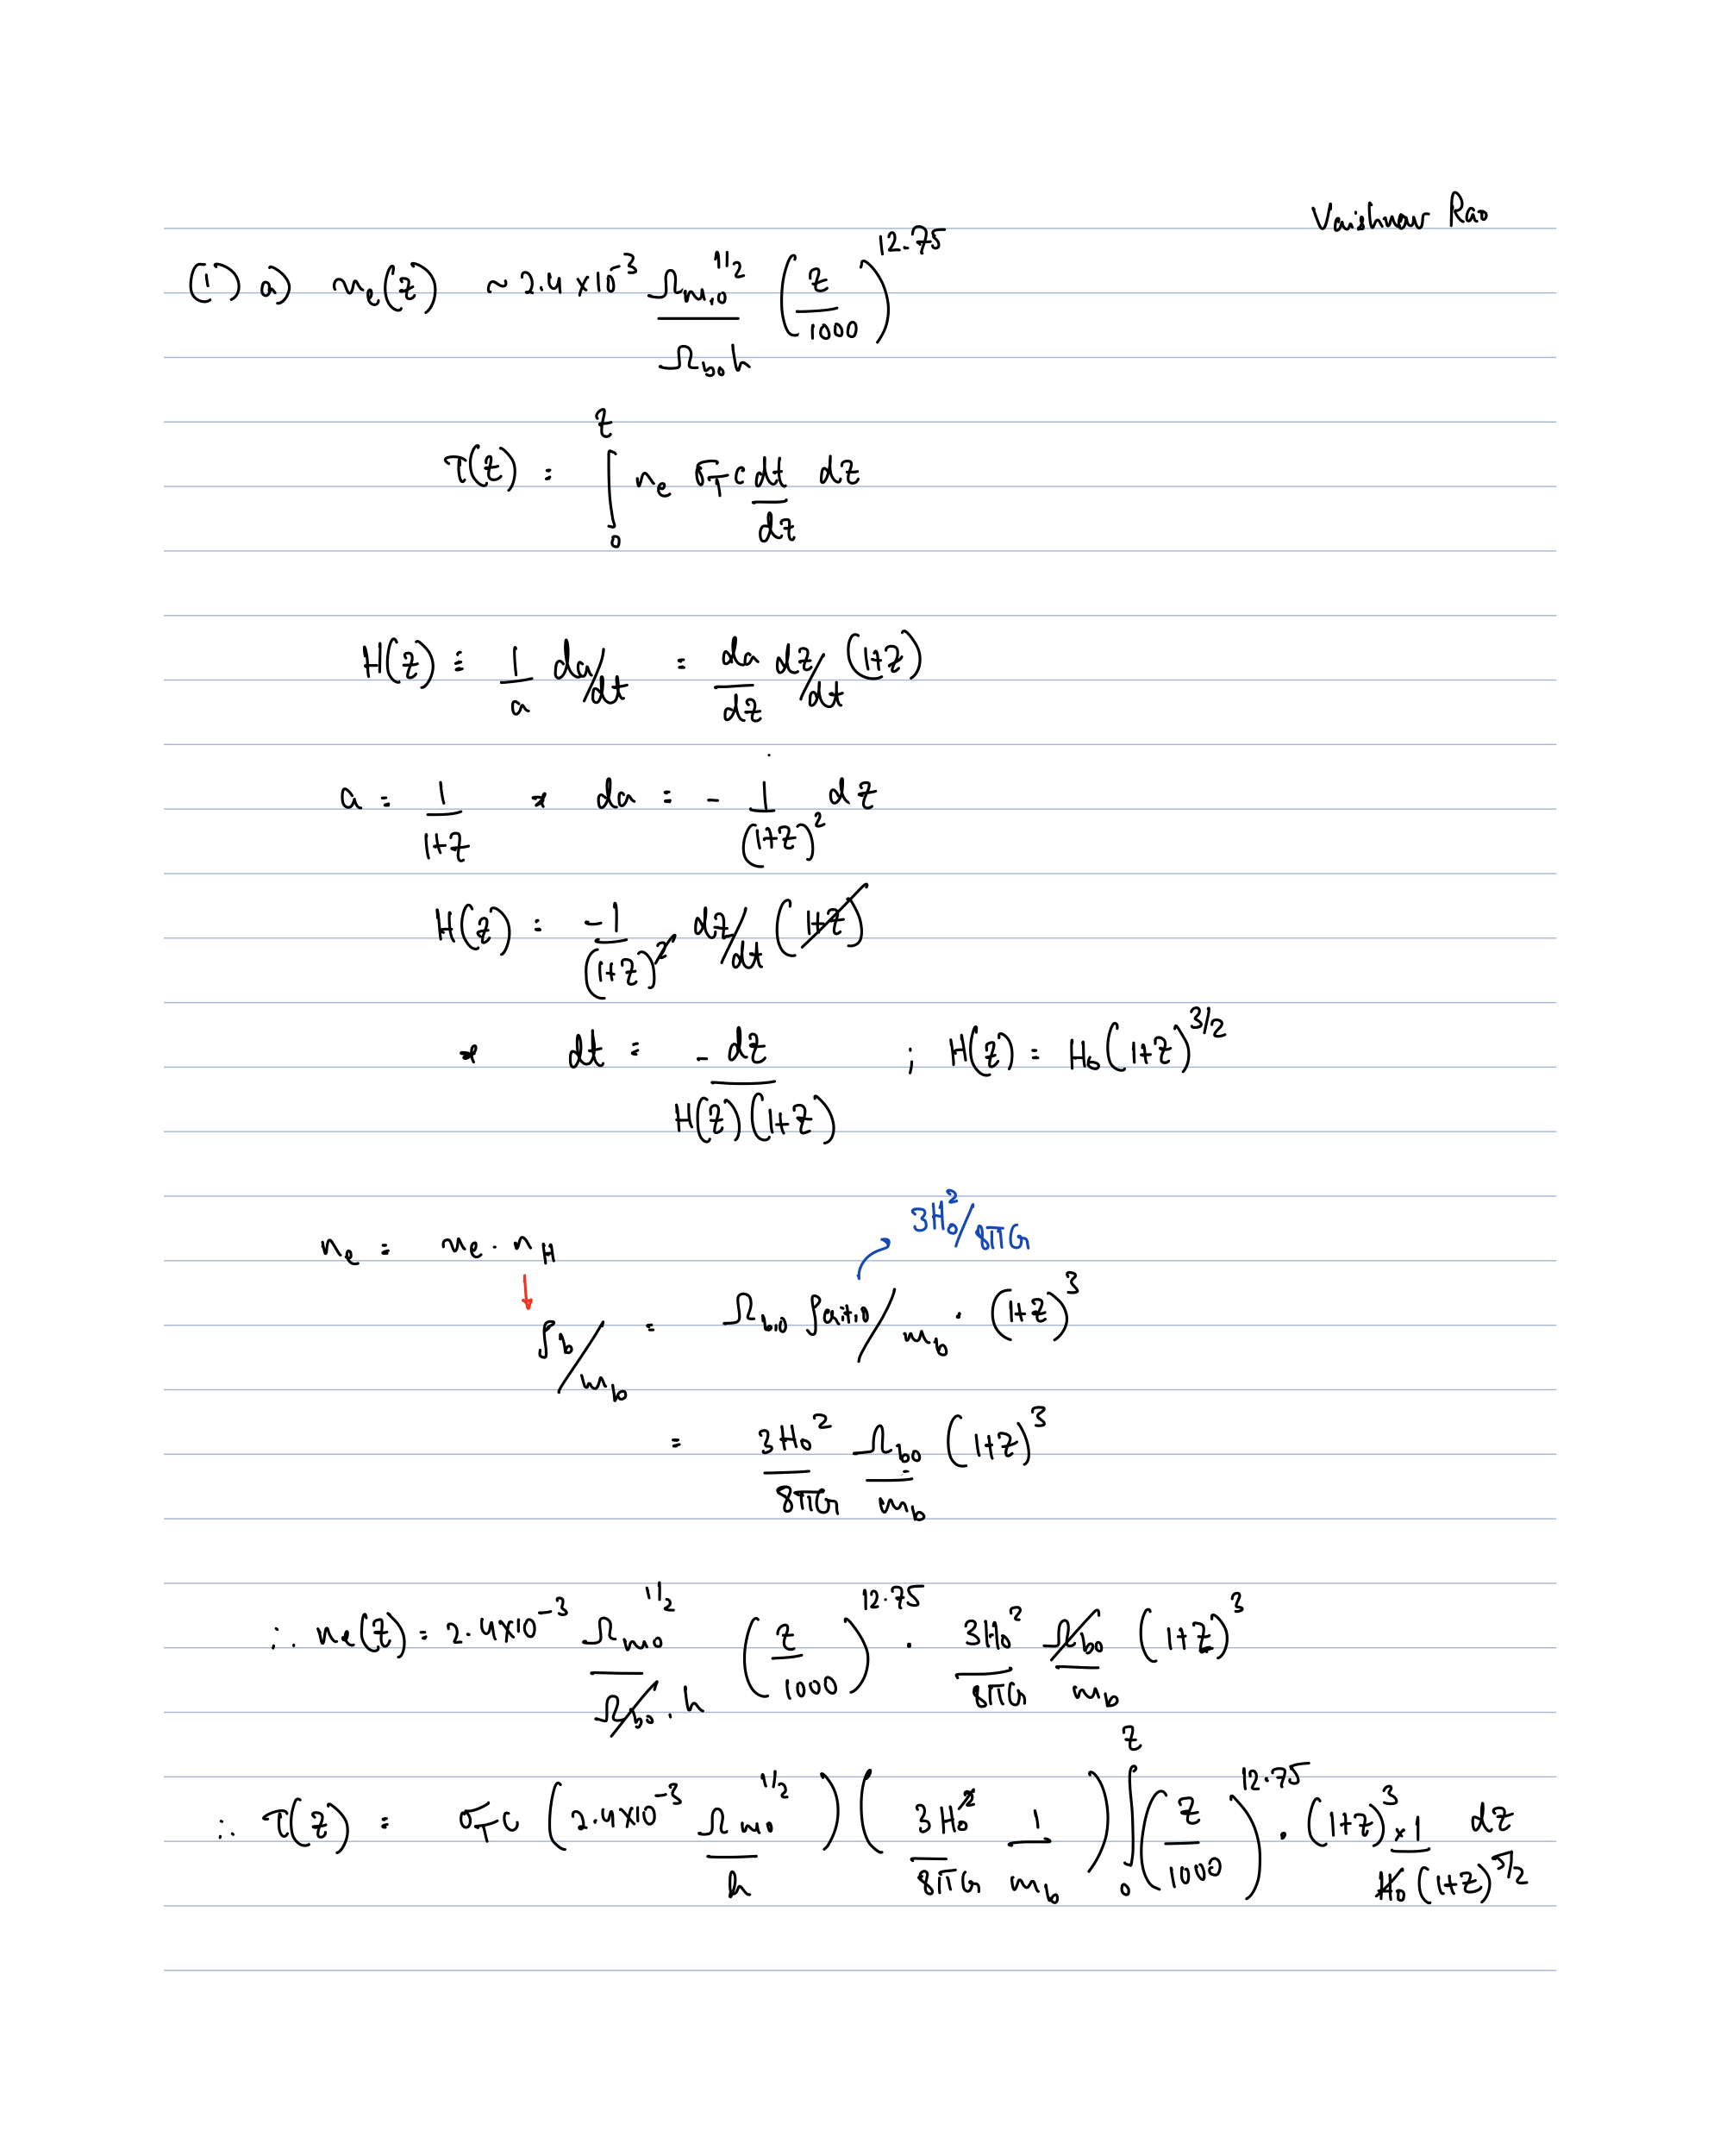 Vaishnav Rao
(1) a) xe(z) ~ 2.4 × 10^-3 Ωm,0^1/2 / Ωb0 h (z/1000)^12.75
τ(z) = ∫_0^z ne σT c dt/dz dz
H(z) = 1/a da/dt = da/dz dz/dt (1+z)
a = 1/(1+z) ⇒ da = - 1/(1+z)^2 dz
H(z) = -1/(1+z)^2 dz/dt (1+z)
⇒ dt = - dz / H(z)(1+z) ; H(z) = H0(1+z)^3/2
3H0^2/8πG
ne = xe · nH
ρb/mb = Ωb,0 ρcrit,0/mb · (1+z)^3
= 3H0^2/8πG Ωb0/mb (1+z)^3
∴ ne(z) = 2.4×10^-3 Ωm0^1/2 / Ωb0 · h (z/1000)^12.75 · 3H0^2/8πG Ωb0/mb (1+z)^3
∴ τ(z) = σT c (2.4×10^-3 Ωm0^1/2 / h) (3H0^2/8πG 1/mb) ∫_0^z (z/1000)^12.75 · (1+z)^3 × 1/H0(1+z)^5/2 dz